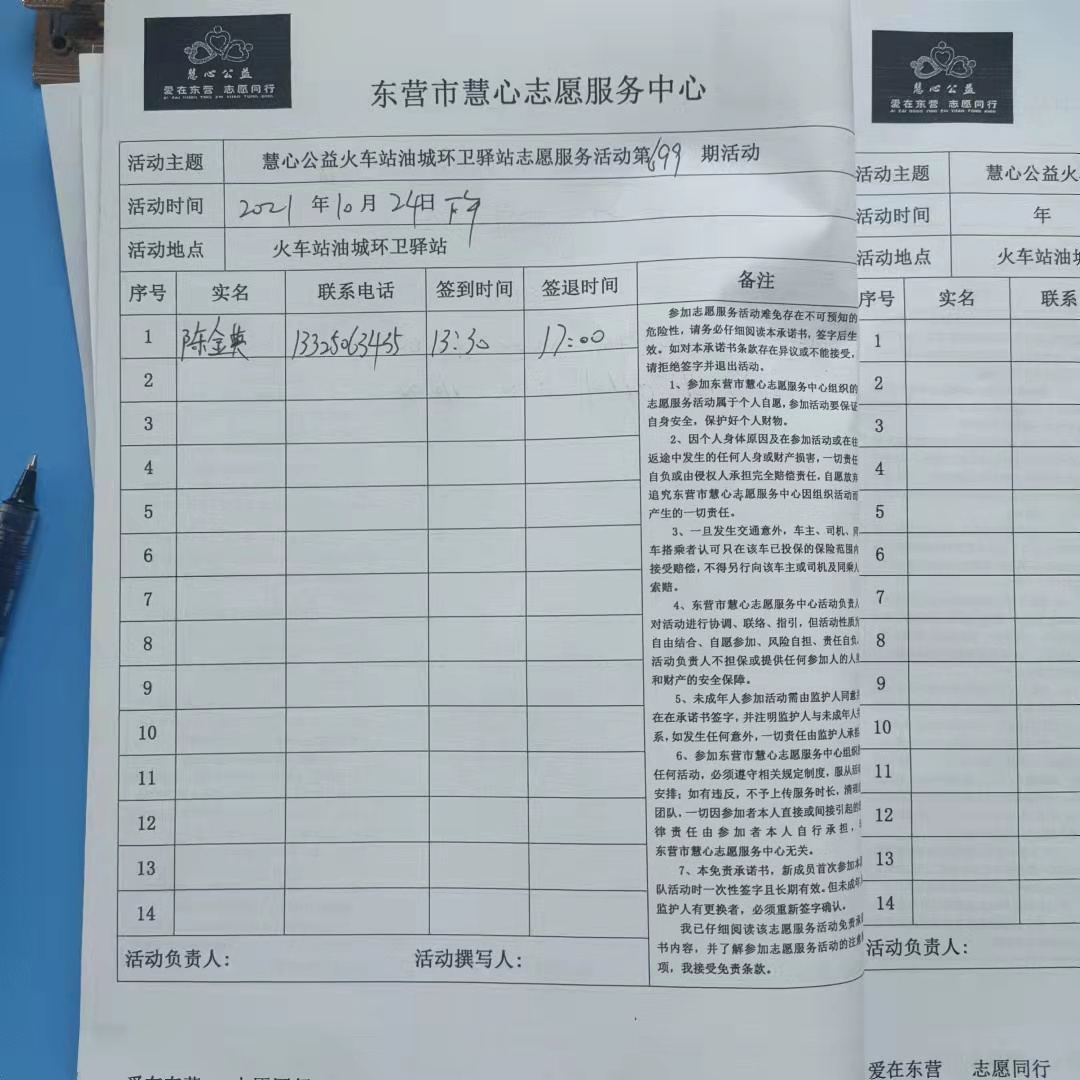 慧心公益
爱在东营 志愿同行
东营市慧心志愿服务中心
活动主题 慧心公益火车站油城环卫驿站志愿服务活动第699期活动
活动时间 2021年10月24日下午
活动地点 火车站油城环卫驿站
序号 实名 联系电话 签到时间 签退时间 备注
1 陈金英 13325063435 13:30 17:00
2
3
4
5
6
7
8
9
10
11
12
13
14
参加志愿服务活动难免存在不可预知的
危险性，请务必仔细阅读本承诺书，签字后生
效。如对本承诺书条款存在异议或不能接受，
请拒绝签字并退出活动。
1、参加东营市慧心志愿服务中心组织的
志愿服务活动属于个人自愿，参加活动要保证
自身安全，保护好个人财物。
2、因个人身体原因及在参加活动或在往
返途中发生的任何人身或财产损害，一切责任
自负或由侵权人承担完全赔偿责任，自愿放弃
追究东营市慧心志愿服务中心因组织活动而
产生的一切责任。
3、一旦发生交通意外，车主、司机、同
车搭乘者认可只在该车已投保的保险范围内
接受赔偿，不得另行向该车主或司机及同乘人
索赔。
4、东营市慧心志愿服务中心活动负责人
对活动进行协调、联络、指引，但活动性质为
自由结合、自愿参加、风险自担、责任自负。
活动负责人不担保或提供任何参加人的人身
和财产的安全保障。
5、未成年人参加活动需由监护人同意并
在在承诺书签字，并注明监护人与未成年人关
系，如发生任何意外，一切责任由监护人承担
6、参加东营市慧心志愿服务中心组织的
任何活动，必须遵守相关规定制度，服从活动
安排；如有违反，不予上传服务时长，清理出
团队，一切因参加者本人直接或间接引起的法
律责任由参加者本人自行承担，与
东营市慧心志愿服务中心无关。
7、本免责承诺书，新成员首次参加本团
队活动时一次性签字且长期有效。但未成年人
监护人有更换者，必须重新签字确认。
我已仔细阅读该志愿服务活动免责承诺
书内容，并了解参加志愿服务活动的注意事
项，我接受免责条款。
活动负责人： 活动撰写人：
慧心公益
爱在东营 志愿同行
活动主题 慧心公益火车
活动时间 年
活动地点 火车站油城
序号 实名 联系
1
2
3
4
5
6
7
8
9
10
11
12
13
14
活动负责人：
爱在东营 志愿同行